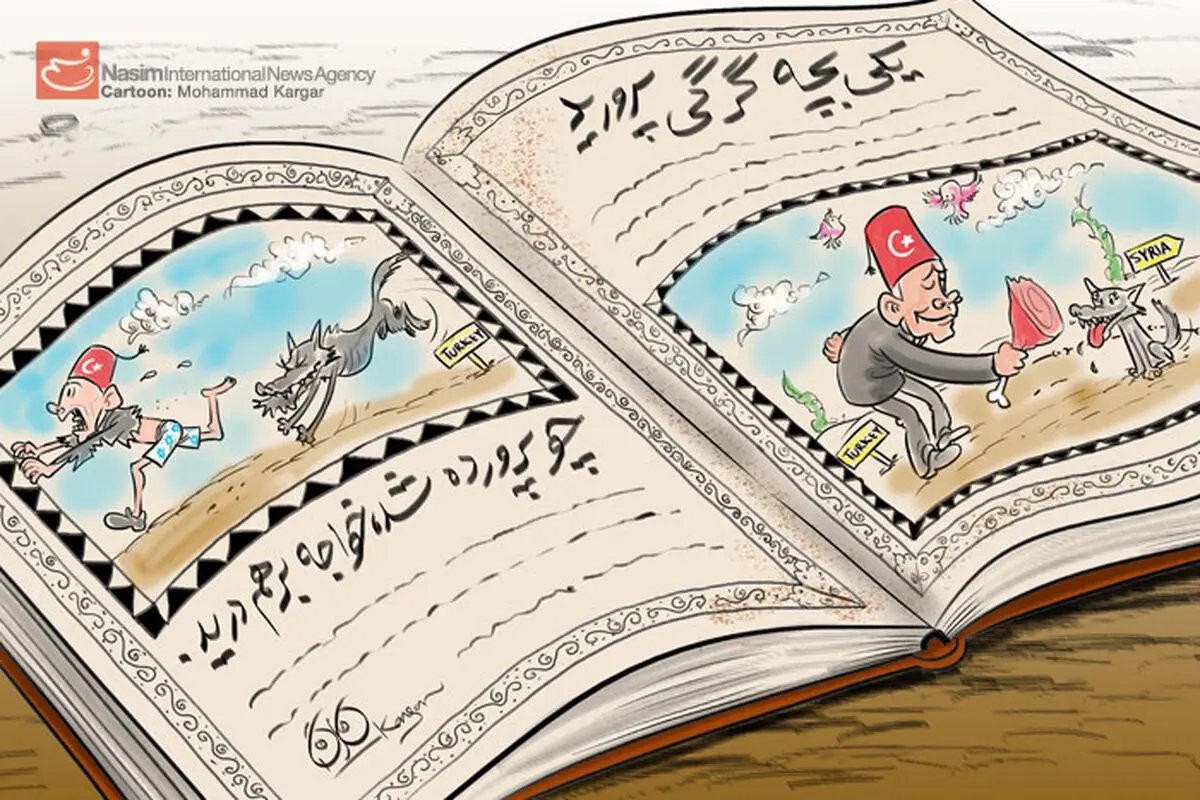 NasimInternationalNewsAgency
Cartoon: Mohammad Kargar
یکی بچه گرگی پرورید
SYRIA
TURKEY
TURKEY
چو پرورده شد خواجه برهم درید.
Kargar